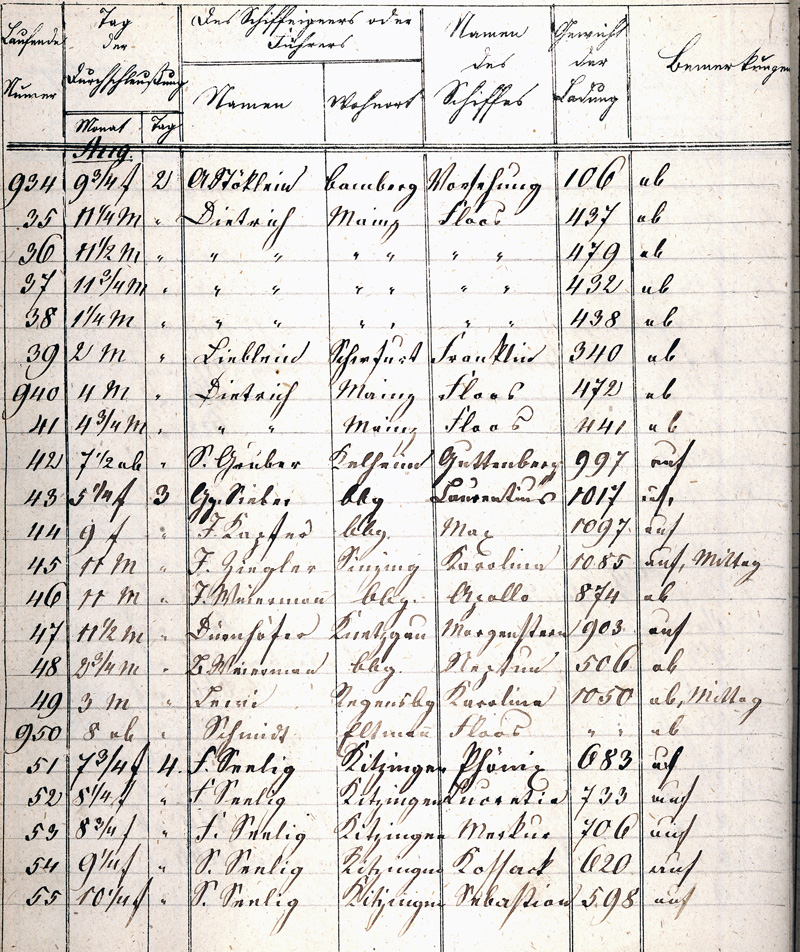 Laufende Numer
Tag der Durchschleußung
Des Schiffeigners oder Führers
Namen des Schiffes
Gewicht der Ladung
Bemerkungen
Namen Wohnort
Monat Tag
Aug.
934 9 3/4 f 2 A Stöklein bamberg Vorsehung 106 ab
35 11 1/4 M " Dietrich Mainz Floos 437 ab
36 11 1/2 M " " " " " " " 479 ab
37 11 3/4 M " " " " " " " 432 ab
38 1 1/4 M " " " " " " " 438 ab
39 2 M " Lieblein Schwfurt Franklin 340 ab
940 4 M " Dietrich Mainz Floos 472 ab
41 4 3/4 M " " " Mainz Floos 441 ab
42 7 1/2 ab " S. Gruber Kelheim Guttenberg 997 auf
43 5 1/4 f 3 Gg. Sieber bbg Laurentius 1017 auf,
44 9 f " J. Kapfer bbg. Max 1097 auf
45 11 M " J. Ziegler Sinzing Karolina 1085 auf, Mittag
46 11 M " J. Weierman bbg. Apollo 874 ab
47 11 1/2 M " Dürnhöfer Knetzgau Morgenstern 903 auf
48 2 3/4 M " B. Weierman bbg. Neptun 506 ab
49 3 M " Regensbg Karolina 1050 ab, Mittag
950 8 ab " Schmidt Eltman Floos " " ab
51 7 3/4 f 4. F. Seelig Kitzingen Phönix 683 auf
52 8 1/4 f " F Seelig Kitzingen Lucretia 733 auf
53 8 3/4 f " F. Seelig Kitzingen Merkur 706 auf
54 9 1/4 f " S. Seelig Kitzingen Kossack 620 auf
55 10 1/4 f " S. Seelig Kitzingen Sebastian 598 auf